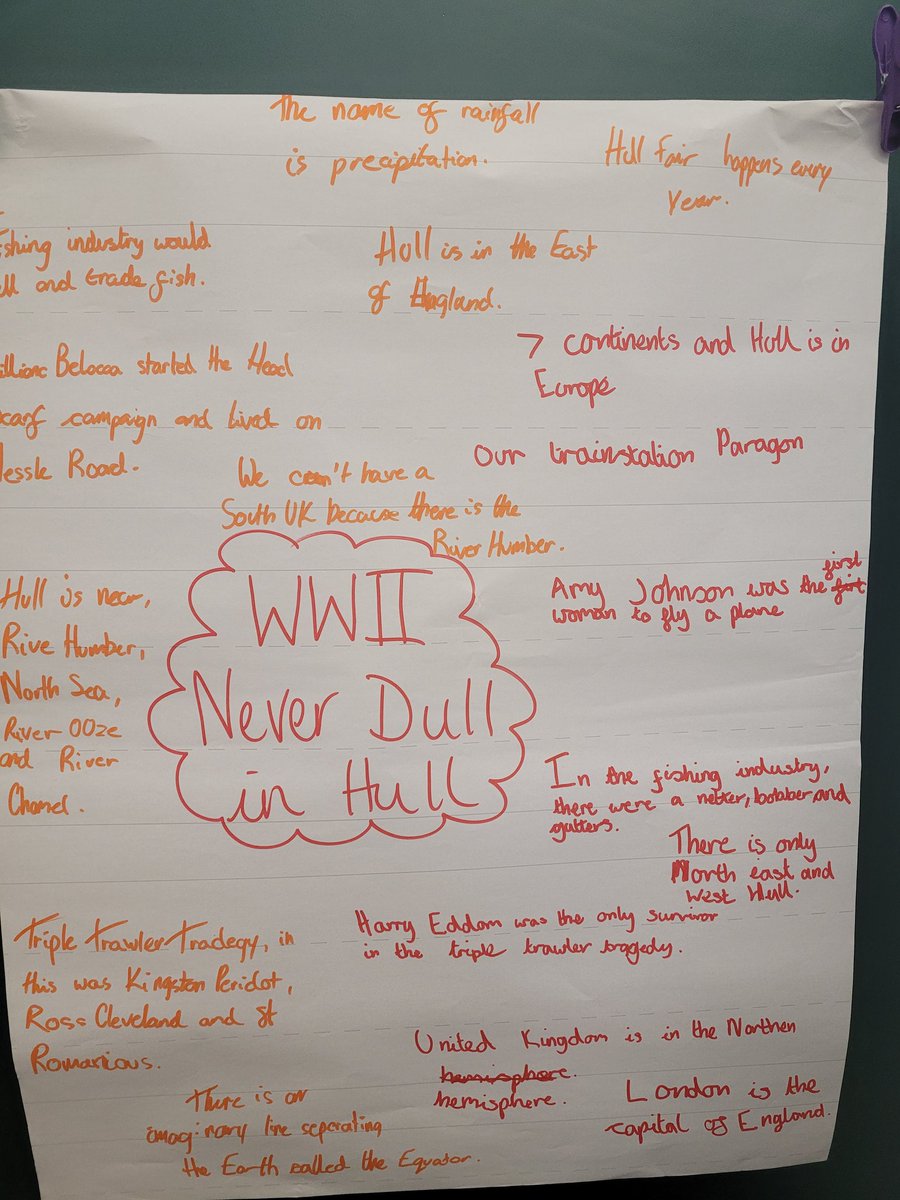 The name of rainfall
is precipitation.
Hull Fair happens every
Year.
shing industry would
ll and trade fish.
Hull is in the East
of England.
7 continents and Hull is in
Europe
illianc Belocca started the Head
carf campaign and lived on
essle Road.
Our trainstation Paragon
We can't have a
South UK because there is the
River Humber.
Amy Johnson was the first
woman to fly a plane
WWII
Never Dull
in Hull
Hull is near,
Rive Humber,
North Sea,
River Ooze
and River
Chanel.
In the fishing industry,
there were a netter, bobber and
gutters.
There is only
North east and
West Hull.
Harry Eddom was the only survivor
in the triple trawler tragedy.
Triple Trawler Tradegy, in
this was Kingston Peridot,
Ross Cleveland and St
Romanious.
United Kingdom is in the Northen
hemisphere.
hemisphere.
London is the
capital of England.
There is an
imaginary line seperating
the Earth called the Equator.